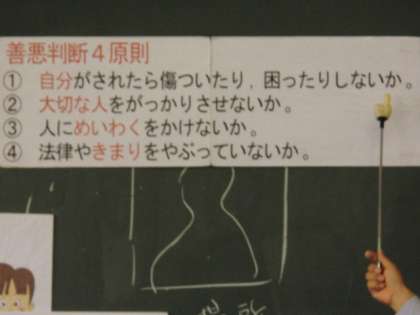 善悪判断4原則
① 自分がされたら傷ついたり，困ったりしないか。
② 大切な人をがっかりさせないか。
③ 人にめいわくをかけないか。
④ 法律やきまりをやぶっていないか。